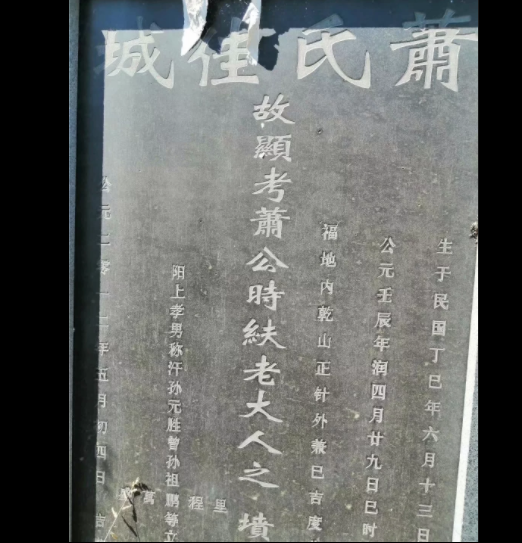 蕭氏佳城
生于民国丁巳年六月十三日
公元壬辰年润四月廿九日巳时
福地内乾山正针外兼巳吉度
故顯考蕭公時䊺老大人之墳
阳上孝男称汗孙元胜曾孙祖鹏等立
萬程里
公元二零一二年五月初四日吉